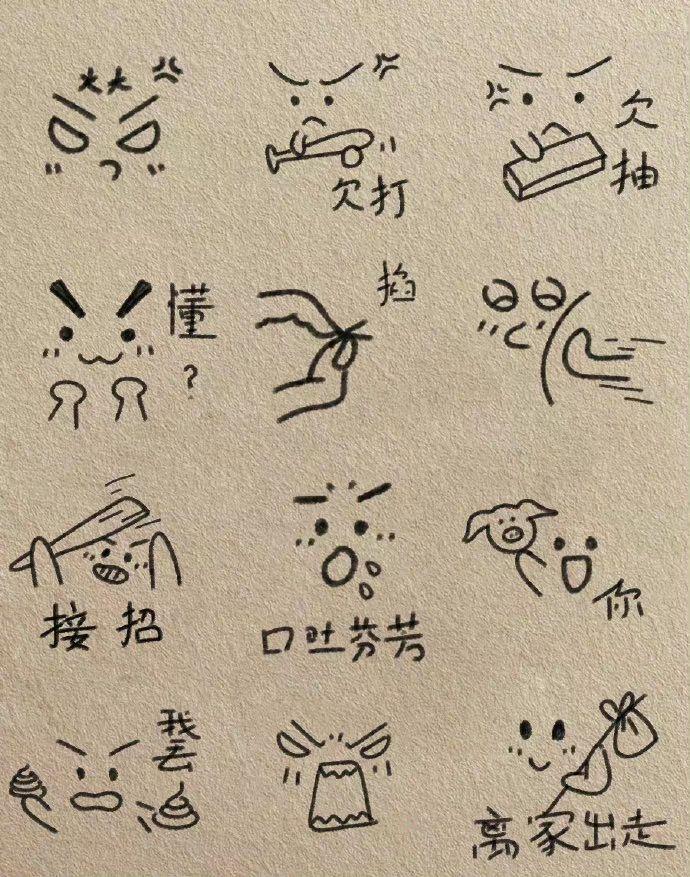 欠打
欠
抽
懂
?
掐
接招
口吐芬芳
你
我
丢
离家出走